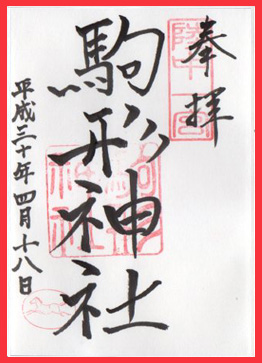 奉拝
陸中一宮
駒形神社
平成三十年四月十八日